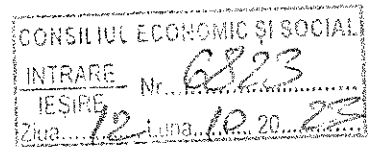 CONSILIUL ECONOMIC ȘI SOCIAL
INTRARE Nr. 6823
IEȘIRE
Ziua.... 12 Luna.. 10 .. 20.. 23